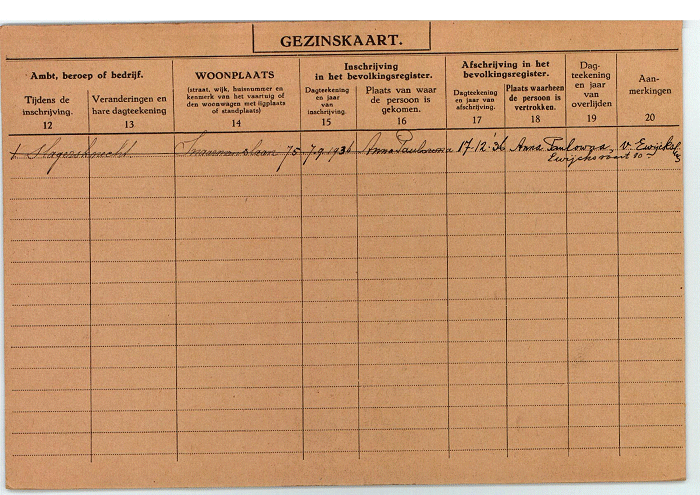 GEZINSKAART.
Ambt, beroep of bedrijf.
Tijdens de
inschrijving.
12
Veranderingen en
hare dagteekening
13
WOONPLAATS
(straat, wijk, huisnummer en
kenmerk van het vaartuig of
den woonwagen met ligplaats
of standplaats)
14
Inschrijving
in het bevolkingsregister.
Dagteekening
en jaar
van
inschrijving.
15
Plaats van waar
de persoon is
gekomen.
16
Afschrijving in het
bevolkingsregister.
Dagteekening
en jaar van
afschrijving.
17
Plaats waarheen
de persoon is
vertrokken.
18
Dag-
teekening
en jaar
van
overlijden
19
Aan-
merkingen
20
1. Slagersknecht. 75 7.9.1936 Anna Paulowna 17-12-'36 Anna Paulowna,
Ewijcksvaart